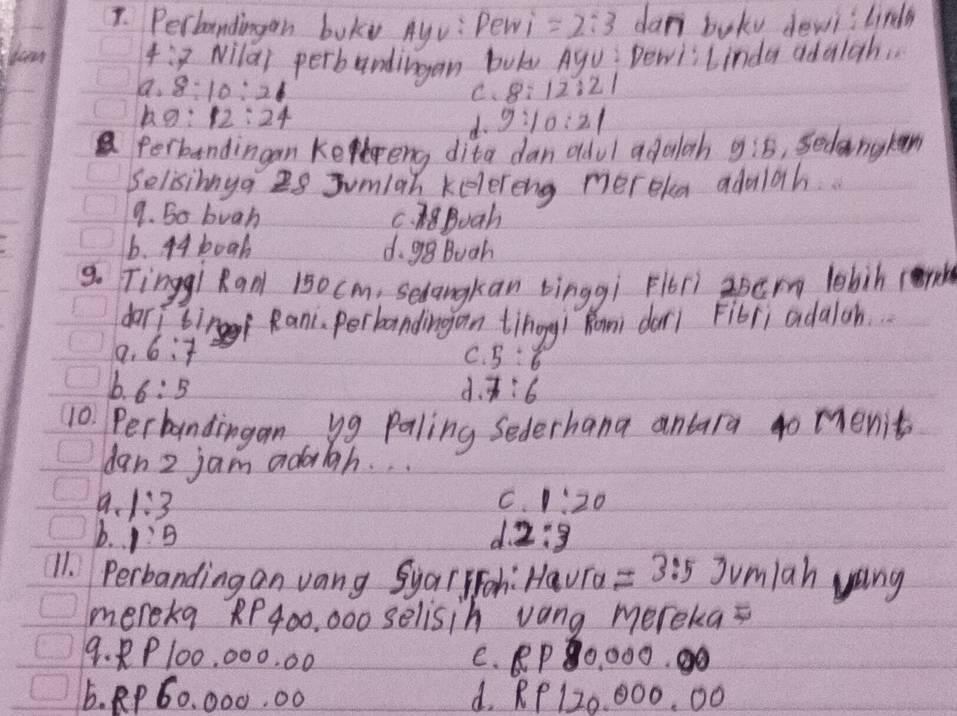 7. Perbandingan buku Ayu : Dewi = 2:3 dan buku dewi : Linda
4:7 Nilai perbandingan buku Ayu : Dewi : Linda adalah...
a. 8:10:21
c. 8:12:21
b. 9:12:24
d. 9:10:21
8. Perbandingan Kelereng dita dan adul adalah 9:5, sedangkan
Selisihnya 28 Jumlah kelereng mereka adalah...
a. 50 buah
c. 78 Buah
b. 44 buah
d. 98 Buah
9. Tinggi Rani 150 cm, sedangkan tinggi Fitri 25cm lebih rendah
dari tinggi Rani. Perbandingan tinggi Rani dari Fitri adalah...
a. 6:7
c. 5:6
b. 6:5
d. 7:6
10. Perbandingan yg Paling Sederhana antara 40 menit
dan 2 jam adalah...
a. 1:3
c. 1:20
b. 1:5
d. 2:3
11. Perbandingan uang Syarifah : Haura = 3:5 Jumlah uang
mereka RP 400.000 selisih uang mereka =
a. RP 100.000.00
c. RP 80.000.00
b. RP 60.000.00
d. RP 120.000.00